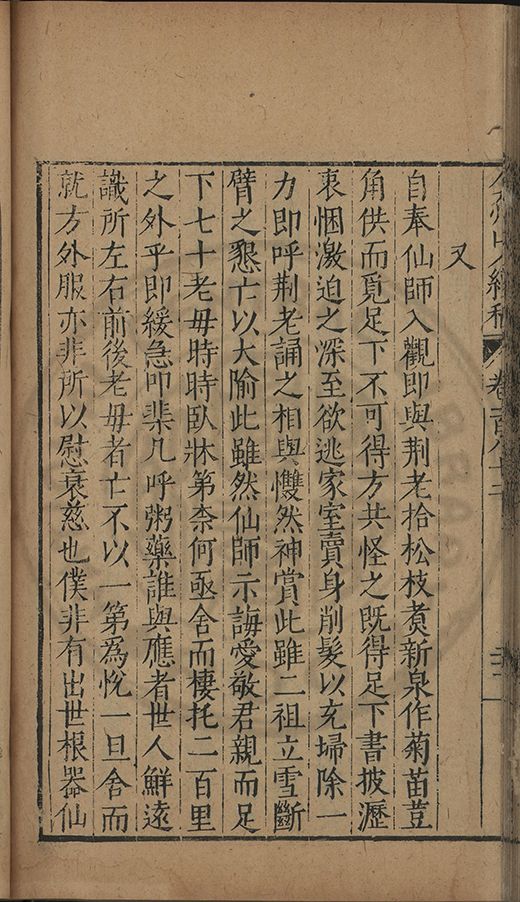 又
自奉仙師入觀即與荆老拾松枝煑新泉作菊苗荳
角供而覓足下不可得方共怪之既得足下書披瀝
衷悃激迫之深至欲逃家室賣身削髮以充埽除一
力即呼荆老誦之相與戄然神賞此雖二祖立雪斷
臂之懇亡以大隃此雖然仙師示誨愛敬君親而足
下七十老毋時時臥牀第柰何亟舍而棲托二百里
之外乎即緩急叩棐几呼粥藥誰與應者世人鮮遠
識所左右前後老毋者亡不以一第爲恱一旦舍而
就方外服亦非所以慰衰慈也僕非有出世根器仙